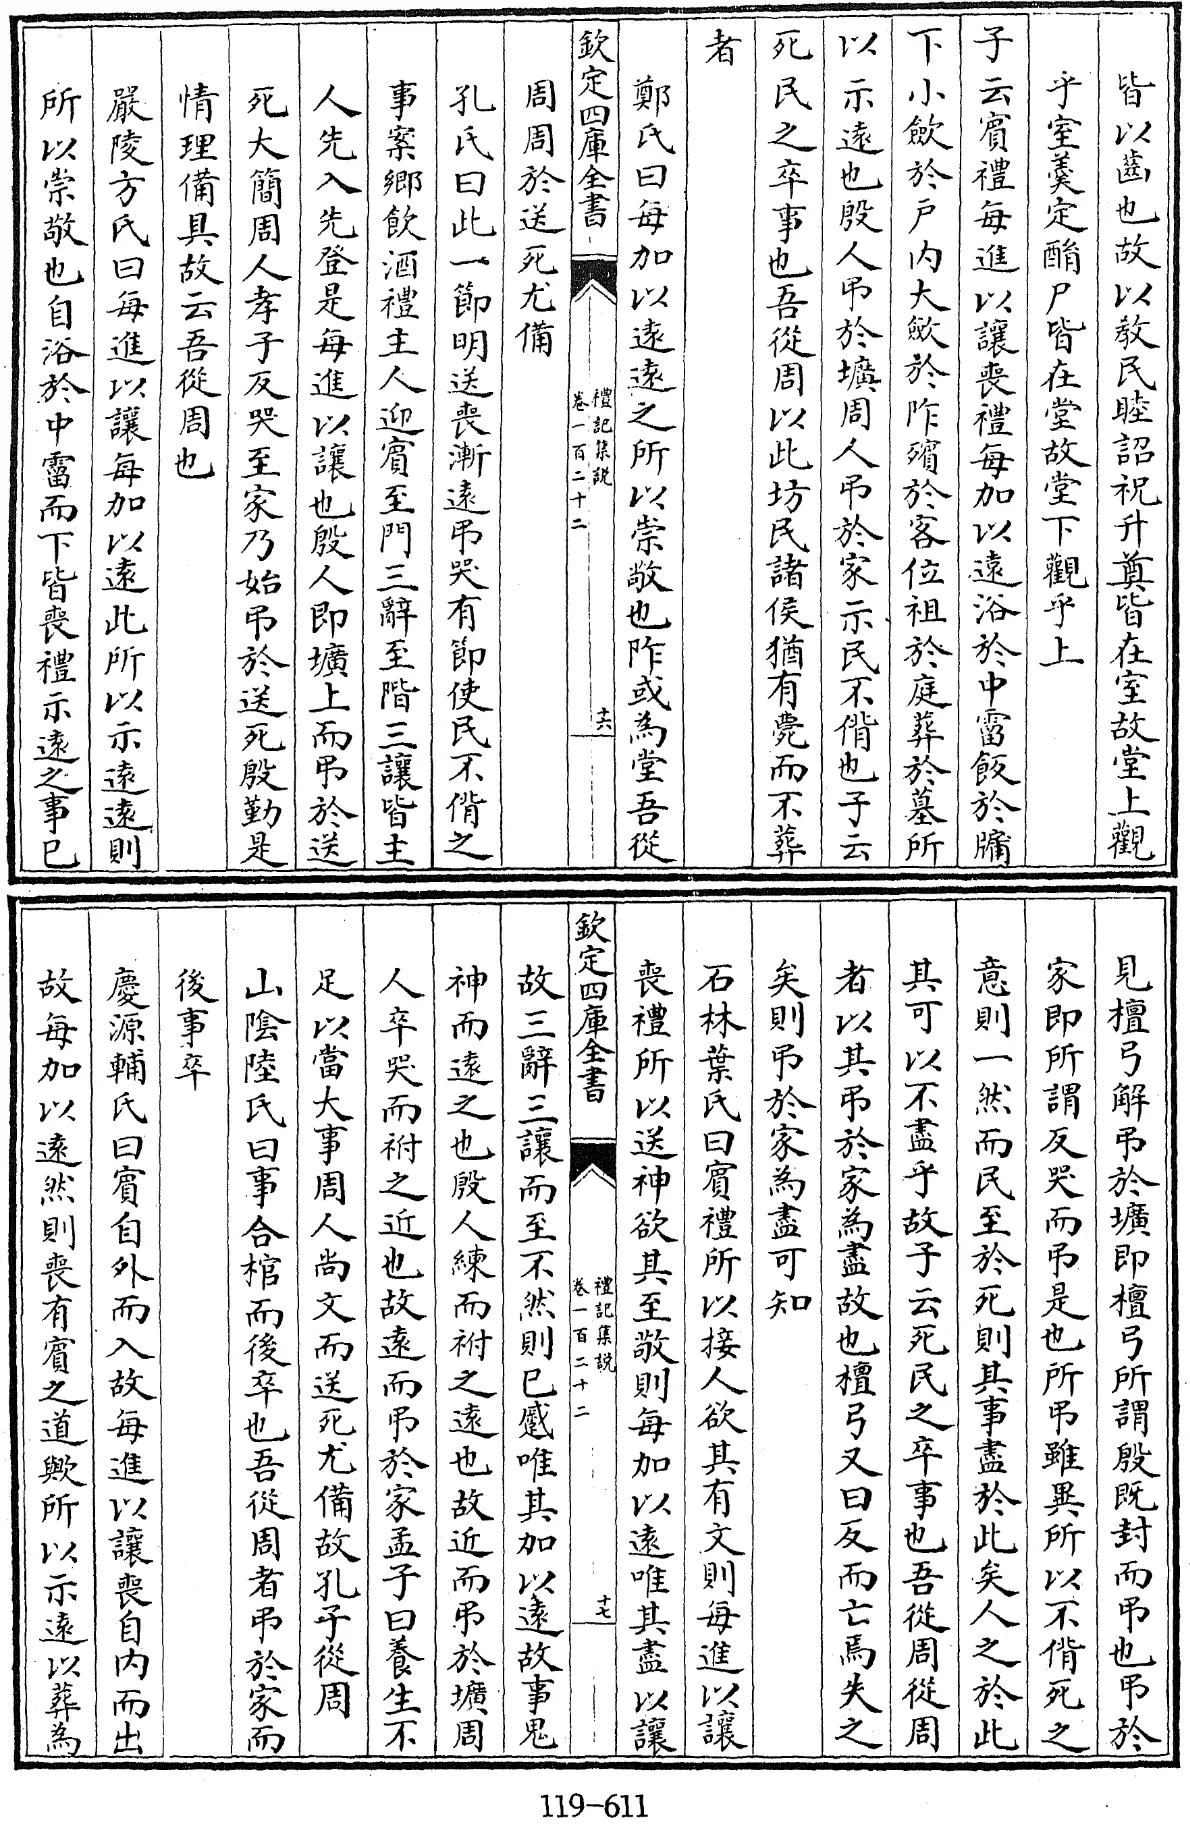 皆以齒也故以教民睦詔祝升奠皆在室故堂上觀
乎室羹定酳尸皆在堂故堂下觀乎上
子云賓禮每進以讓喪禮每加以遠浴於中霤飯於牖
下小斂於戶內大斂於阼殯於客位祖於庭葬於墓所
以示遠也殷人弔於壙周人弔於家示民不偝也子云
死民之卒事也吾從周以此坊民諸侯猶有薨而不葬
者
鄭氏曰每加以遠遠之所以崇敬也阼或為堂吾從
欽定四庫全書
禮記集説
卷一百二十二
十六
周周於送死尤備
孔氏曰此一節明送喪漸遠弔哭有節使民不偝之
事案鄉飲酒禮主人迎賓至門三辭至階三讓皆主
人先入先登是每進以讓也殷人即壙上而弔於送
死大簡周人孝子反哭至家乃始弔於送死殷勤是
情理備具故云吾從周也
嚴陵方氏曰每進以讓每加以遠此所以示遠遠則
所以崇敬也自浴於中霤而下皆喪禮示遠之事已
見檀弓解弔於壙即檀弓所謂殷既封而弔也弔於
家即所謂反哭而弔是也所弔雖異所以不偝死之
意則一然而民至於死則其事盡於此矣人之於此
其可以不盡乎故子云死民之卒事也吾從周從周
者以其弔於家為盡故也檀弓又曰反而亡焉失之
矣則弔於家為盡可知
石林葉氏曰賓禮所以接人欲其有文則每進以讓
喪禮所以送神欲其至敬則每加以遠唯其盡以讓
欽定四庫全書
禮記集説
卷一百二十二
十七
故三辭三讓而至不然則已慼唯其加以遠故事鬼
神而遠之也殷人練而祔之遠也故近而弔於壙周
人卒哭而祔之近也故遠而弔於家孟子曰養生不
足以當大事周人尚文而送死尤備故孔子從周
山陰陸氏曰事合棺而後卒也吾從周者弔於家而
後事卒
慶源輔氏曰賓自外而入故每進以讓喪自內而出
故每加以遠然則喪有賓之道歟所以示遠以葬為
119-611